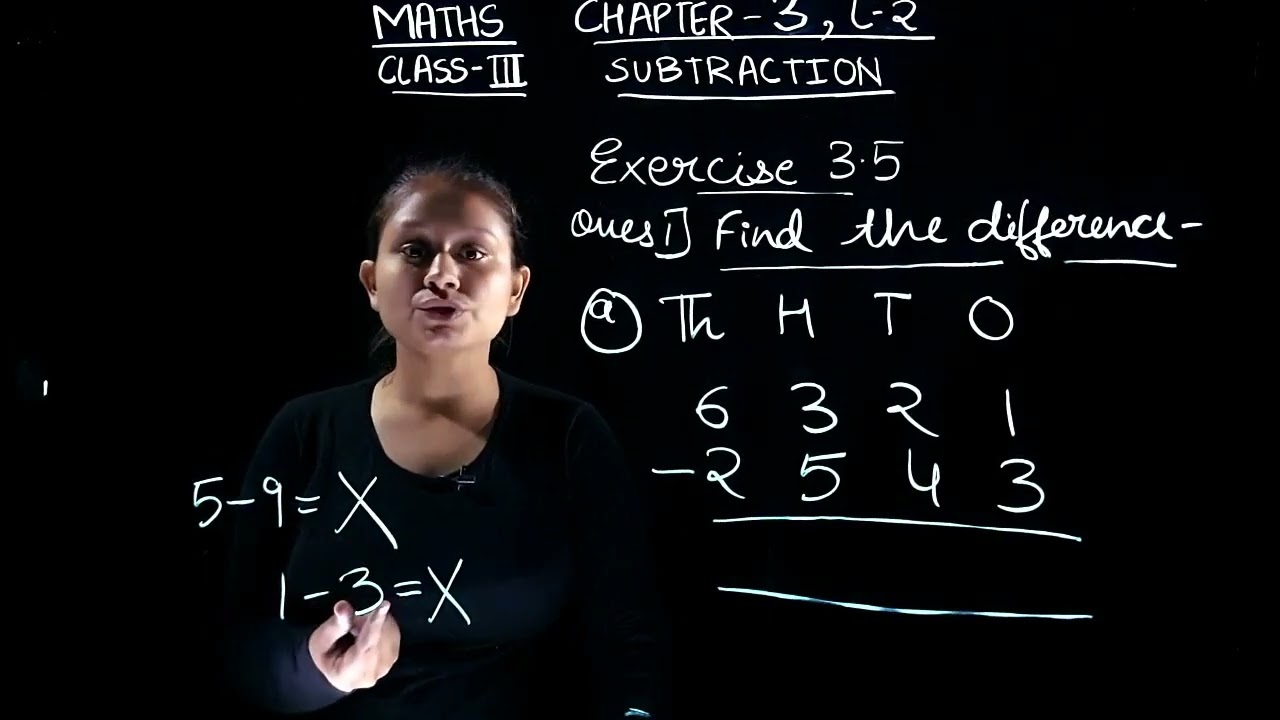 MATHS CHAPTER-3, L-2
CLASS-III SUBTRACTION
Exercise 3.5
Ques 1] Find the difference-
(a) Th H T O
6 3 2 1
-2 5 4 3
5-9=X
1-3=X